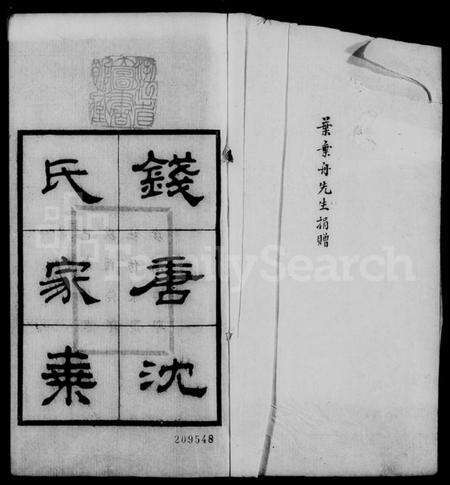 葉舟先生捐贈
錢唐沈
氏家乘
209548
FamilySearch